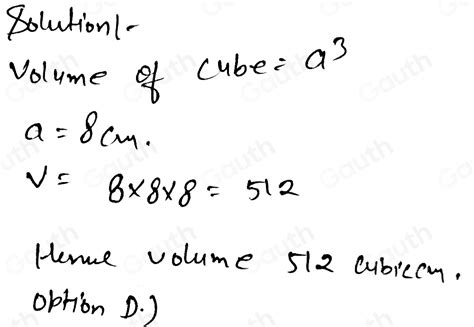 Solution:-
Volume of cube = a³
a = 8cm.
V = 8×8×8 = 512
Hence volume 512 cubiccm.
option D.)